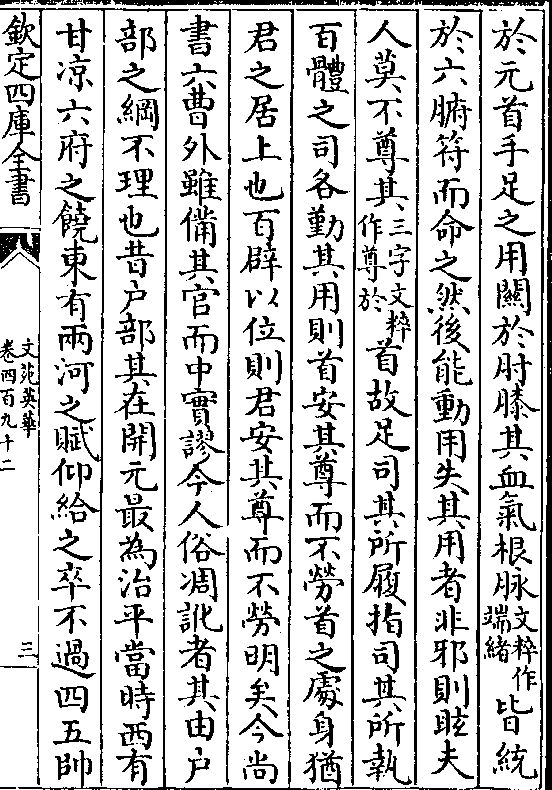 於元首手足之用關於肘膝其血氣根脉文粹作端緒皆統
於六腑符而命之然後能動用失其用者非邪則眩夫
人莫不尊其三字文粹作尊於首故足司其所履指司其所執
百體之司各勤其用則首安其尊而不勞首之處身猶
君之居上也百辟以位則君安其尊而不勞明矣今尚
書六曹外雖備其官而中實謬今人俗凋訛者其由户
部之綱不理也昔户部其在開元最為治平當時西有
甘凉六府之饒東有兩河之賦仰給之卒不過四五帥
欽定四庫全書
文苑英華
卷四百九十二
三